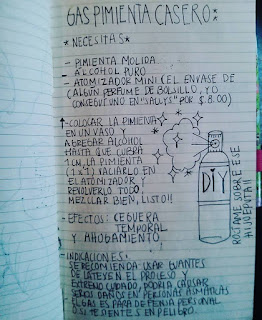 GAS PIMIENTA CASERO:
*NECESITAS*
- PIMIENTA MOLIDA
- ALCOHOL PURO
- ATOMIZADOR MINI (EL ENVASE DE
(ALGÚN PERFUME DE BOLSILLO, YO
CONSEGUÍ UNO EN "SALLYS" POR $8.00)
1- COLOCAR LA PIMIENTA
EN UN VASO Y
AGREGAR ALCOHOL
HASTA QUE CUBRA
1 CM, LA PIMIENTA
(1x1) VACIARLO EN
EL ATOMIZADOR Y
REVOLVERLO TODO
MEZCLAR BIEN, LISTO!!
- EFECTOS: CEGUERA
TEMPORAL
Y AHOGAMIENTO
DIY
ROCIAME SOBRE ESE
HIJUEPUTA!
INDICACIONES:
SE RECOMIENDA USAR GUANTES
DE LATEX EN EL PROCESO Y
EXTREMO CUIDADO, PODRÍA CAUSAR
SERIOS DAÑOS EN PERSONAS ASMÁTICAS
EL GAS ES PARA DEFENSA PERSONAL
O SI TE SIENTES EN PELIGRO.